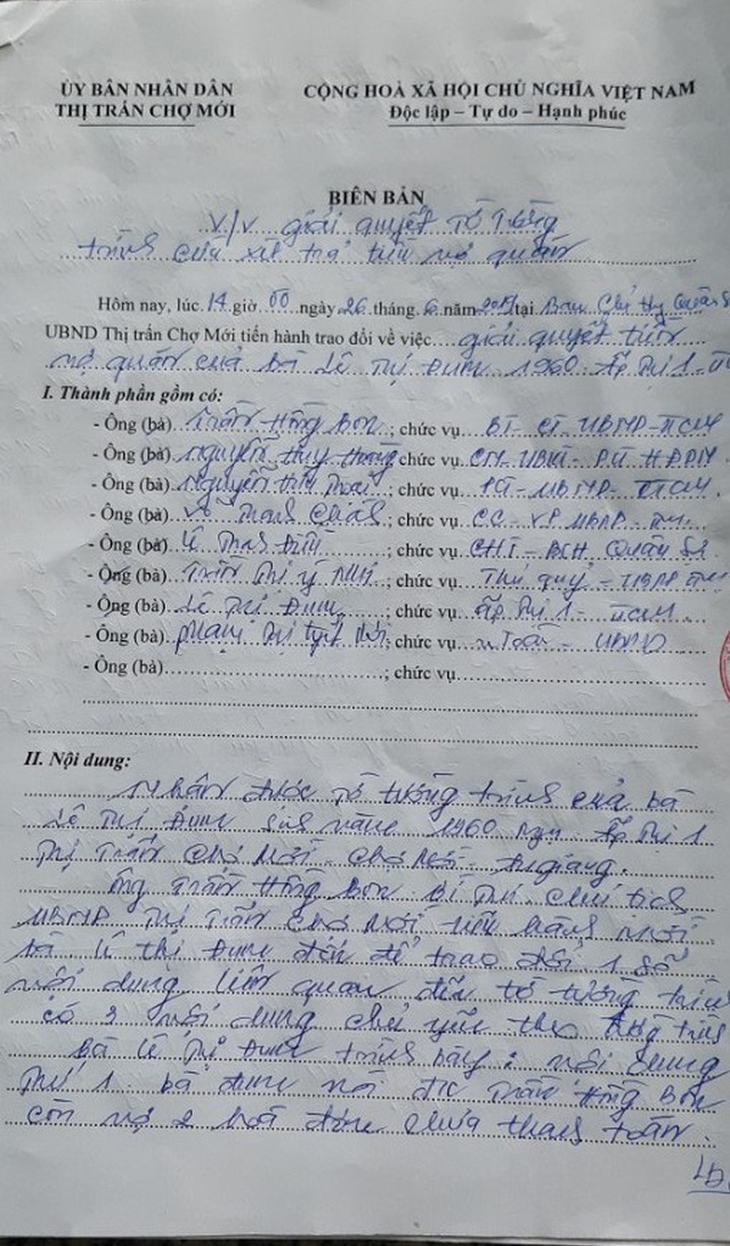 ỦY BÂN NHÂN DÂN
THỊ TRẤN CHỢ MỚI
CỘNG HOÀ XÃ HỘI CHỦ NGHĨA VIỆT NAM
Độc lập – Tự do – Hạnh phúc
BIÊN BẢN
V/v giải quyết tờ tường
trình của trả tiền nợ quán
Hôm nay, lúc 14 giờ 00 ngày 26 tháng 6 năm tại Ban Chỉ Huy Quân
UBND Thị trấn Chợ Mới tiến hành trao đổi về việc giải quyết tiền
nợ quán của bà Lê Thị Đung 1960 Ấp Thị 1 -
I. Thành phần gồm có:
- Ông (bà) Trần Hồng Bon ; chức vụ BT - CT UBND - TTCM
- Ông (bà) Nguyễn Huy chức vụ
- Ông (bà) Nguyễn ; chức vụ PCT - UBND - TTCM
- Ông (bà) Võ Thanh ; chức vụ CC - VP UBND - TT
- Ông (bà) Lê Thanh ; chức vụ CHT - BCH Quân Sự
- Ông (bà) Trần Thị Ý Nhi ; chức vụ Thủ quỹ - UBND TT
- Ông (bà) Lê Thị Đung ; chức vụ Ấp Thị 1 - TTCM
- Ông (bà) Phạm Thị Tuyết ; chức vụ Toán - UBND
- Ông (bà) ; chức vụ
II. Nội dung:
Nhận được tờ tường trình của bà
Lê Thị Đung sinh năm 1960 ngụ Ấp Thị 1
Thị Trấn Chợ Mới - Chợ Mới - An giang.
Ông Trần Hồng Bon Bí Thư - Chủ tịch
UBND Thị Trấn Chợ Mới tiến hành mời
bà Lê Thị Đung đến để trao đổi 1 số
nội dung liên quan đến tờ tường trình
có 2 nội dung chủ yếu theo tường trình
Bà Lê Thị Đung trình bày: nội dung
thứ 1. bà Đung nói đ/c Trần Hồng Bon
còn nợ 2 hoá đơn chưa thanh toán.